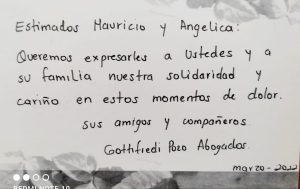 Estimados Mauricio y Angelica:
Queremos expresarles a Ustedes y a
su familia nuestra solidaridad y
cariño en estos momentos de dolor.
sus amigos y compañeros
Gottifredi Pozo Abogados.
marzo-2022
REDMI NOTE 10